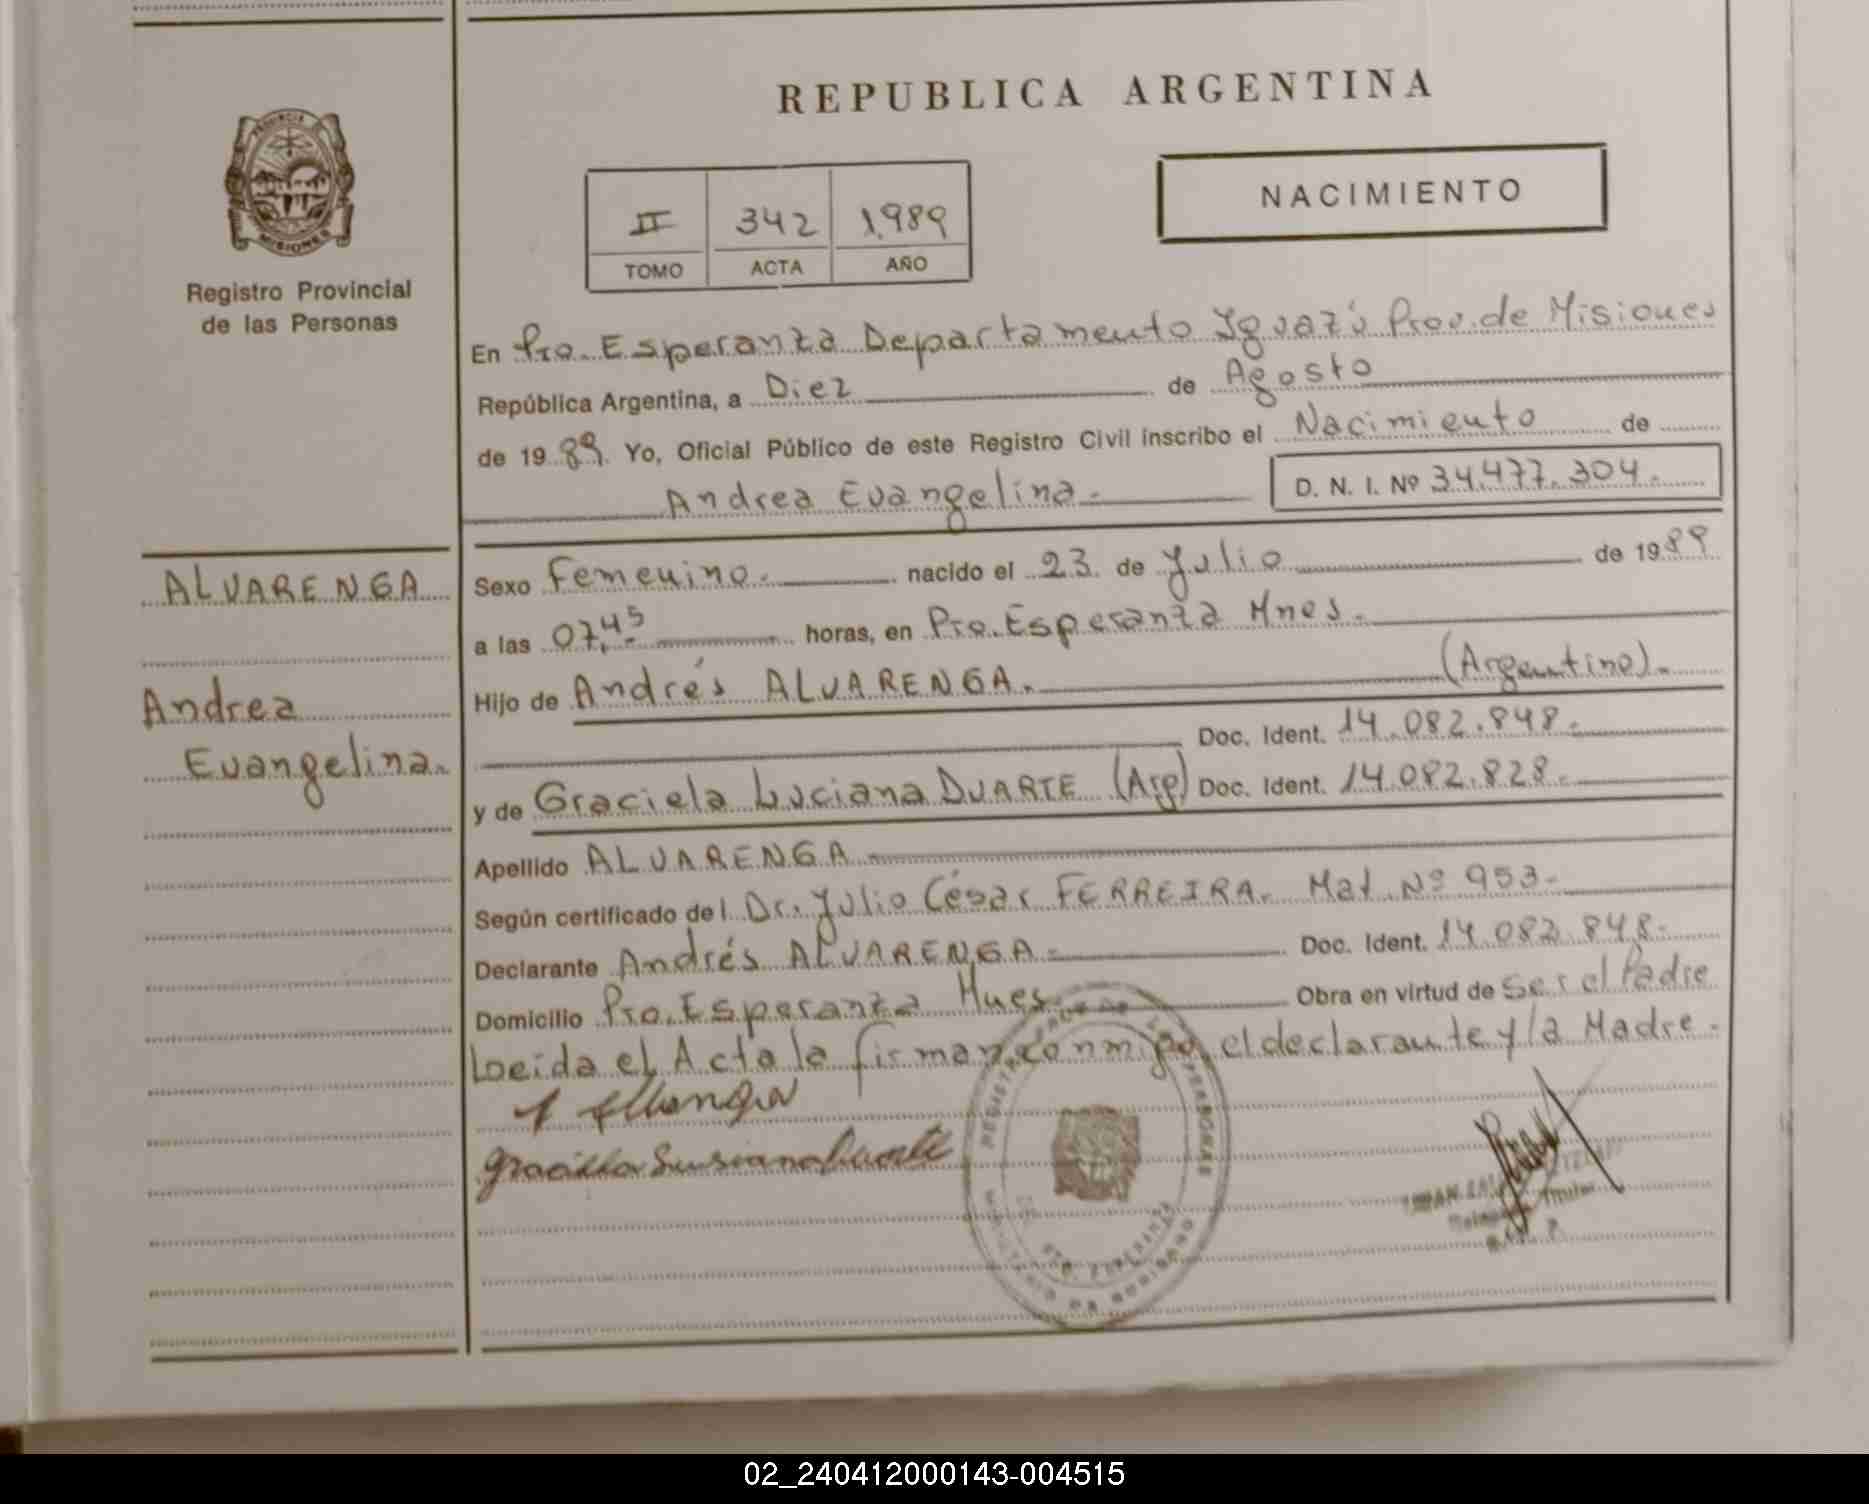 REPUBLICA ARGENTINA
PROVINCIA
MISIONES
Registro Provincial
de las Personas
II 342 1.989
TOMO ACTA AÑO
NACIMIENTO
En Pto. Esperanza Departamento Iguazú Prov. de Misiones
República Argentina, a Diez de Agosto
de 1989. Yo, Oficial Público de este Registro Civil inscribo el Nacimiento de
Andrea Evangelina.- D. N. I. Nº 34.477.304.-
ALVARENGA
Andrea
Evangelina.-
Sexo Femenino. nacido el 23 de Julio de 1989
a las 07,45 horas, en Pto. Esperanza Mnes.-
Hijo de Andrés ALVARENGA.- (Argentino).-
Doc. Ident. 14.082.848.-
y de Graciela Luciana DUARTE (Arg) Doc. Ident. 14.082.828.-
Apellido ALVARENGA
Según certificado del Dr. Julio César FERREIRA.- Mat. Nº 953.-
Declarante Andrés ALVARENGA.- Doc. Ident. 14.082.848.-
Domicilio Pto. Esperanza Mnes. Obra en virtud de Ser el Padre
Leida el Acta la firman conmigo, el declarante y la Madre.-
REGISTRO DE LAS PERSONAS
PTO. ESPERANZA
Titular
02_240412000143-004515